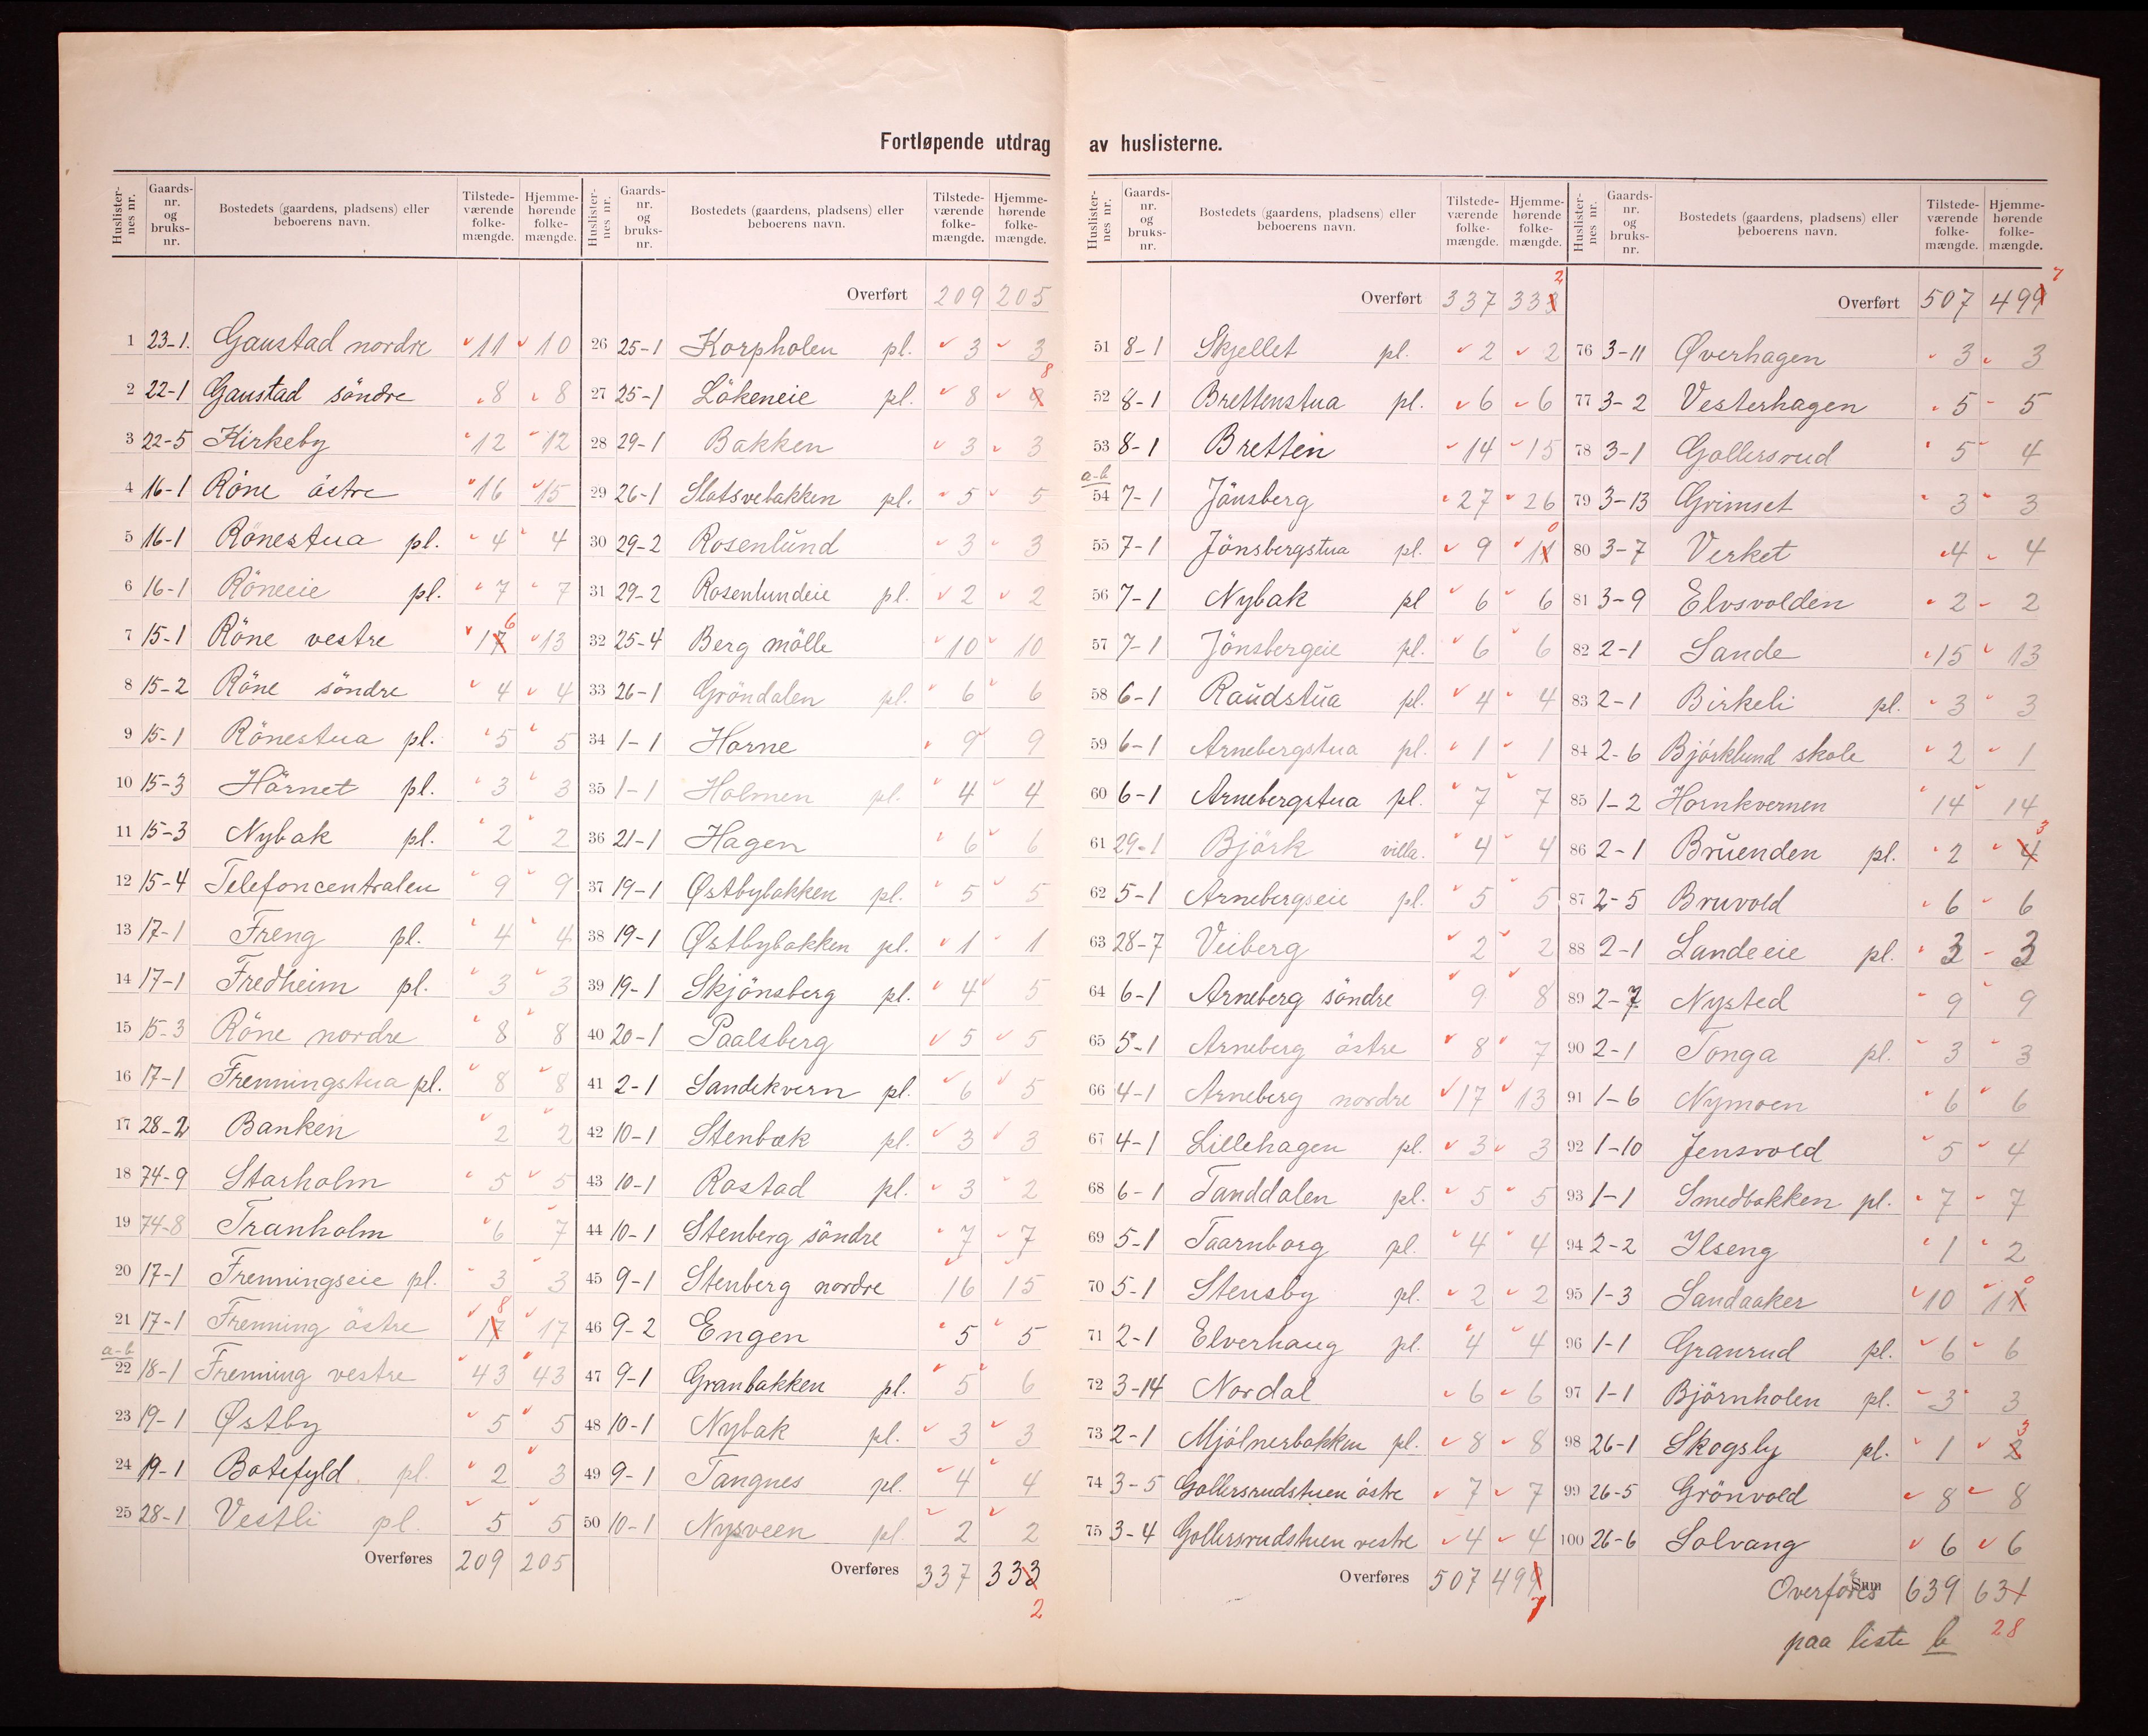 Fortløpende utdrag av huslisterne.
Huslister-nes nr. Gaards-nr. og bruks-nr. Bostedets (gaardens, pladsens) eller beboerens navn. Tilstede-værende folke-mængde. Hjemme-hørende folke-mængde.
1 23-1. Gaustad nordre 11 10
2 22-1 Gaustad söndre 8 8
3 22-5 Kirkeby 12 12
4 16-1 Röne östre 16 15
5 16-1 Rönestua pl. 4 4
6 16-1 Röneeie pl. 7 7
7 15-1 Röne vestre 17 6 13
8 15-2 Röne söndre 4 4
9 15-1 Rönestua pl. 5 5
10 15-3 Hörnet pl. 3 3
11 15-3 Nybak pl. 2 2
12 15-4 Telefoncentralen 9 9
13 17-1 Freng pl. 4 4
14 17-1 Fredheim pl. 3 3
15 15-3 Röne nordre 8 8
16 17-1 Frenningstua pl. 8 8
17 28-2 Banken 2 2
18 74-9 Starholm 5 5
19 74-8 Tranholm 6 7
20 17-1 Frenningseie pl. 3 3
21 17-1 Frenning östre 17 8 17
a-b
22 18-1 Frenning vestre 43 43
23 19-1 Østby 5 5
24 19-1 Botefyld pl. 2 3
25 28-1 Vestli pl. 5 5
Overføres 209 205
Huslister-nes nr. Gaards-nr. og bruks-nr. Bostedets (gaardens, pladsens) eller beboerens navn. Tilstede-værende folke-mængde. Hjemme-hørende folke-mængde.
Overført 209 205
26 25-1 Korpholen pl. 3 3
27 25-1 Lökeneie pl. 8 9 8
28 29-1 Bakken 3 3
29 26-1 Slotsvebakken pl. 5 5
30 29-2 Rosenlund 3 3
31 29-2 Rosenlundeie pl. 2 2
32 25-4 Berg mölle 10 10
33 26-1 Gröndalen pl. 6 6
34 1-1 Horne 9 9
35 1-1 Holmen pl. 4 4
36 21-1 Hagen 6 6
37 19-1 Østbybakken pl. 5 5
38 19-1 Østbybakken pl. 1 1
39 19-1 Skjönsberg pl. 4 5
40 20-1 Paalsberg 5 5
41 2-1 Sandekvern pl. 6 5
42 10-1 Stenbæk pl. 3 3
43 10-1 Rastad pl. 3 2
44 10-1 Stenberg söndre 7 7
45 9-1 Stenberg nordre 16 15
46 9-2 Engen 5 5
47 9-1 Granbakken pl. 5 6
48 10-1 Nybak pl. 3 3
49 9-1 Tangnes pl. 4 4
50 10-1 Nysveen pl. 2 2
Overføres 337 333
2
Huslister-nes nr. Gaards-nr. og bruks-nr. Bostedets (gaardens, pladsens) eller beboerens navn. Tilstede-værende folke-mængde. Hjemme-hørende folke-mængde.
Overført 337 333 2
51 8-1 Skjellet pl. 2 2
52 8-1 Brettenstua pl. 6 6
53 8-1 Bretten 14 15
a-b
54 7-1 Jönsberg 27 26
55 7-1 Jönsbergstua pl. 9 11 0
56 7-1 Nybak pl 6 6
57 7-1 Jönsbergeie pl. 6 6
58 6-1 Raudstua pl. 4 4
59 6-1 Arnebergstua pl. 1 1
60 6-1 Arnebergstua pl. 7 7
61 29-1 Björk villa. 4 4
62 5-1 Arnebergseie pl. 5 5
63 28-7 Veiberg 2 2
64 6-1 Arneberg söndre 9 8
65 5-1 Arneberg östre 8 7
66 4-1 Arneberg nordre 17 13
67 4-1 Lillehagen pl. 3 3
68 6-1 Tanddalen pl. 5 5
69 5-1 Taarnborg pl. 4 4
70 5-1 Stensby pl. 2 2
71 2-1 Elverhaug pl. 4 4
72 3-14 Nordal 6 6
73 2-1 Mjölnerbakken pl. 8 8
74 3-5 Gollersrudstuen östre 7 7
75 3-4 Gollersrudstuen vestre 4 4
Overføres 507 499
7
Huslister-nes nr. Gaards-nr. og bruks-nr. Bostedets (gaardens, pladsens) eller beboerens navn. Tilstede-værende folke-mængde. Hjemme-hørende folke-mængde.
Overført 507 499 7
76 3-11 Øverhagen 3 3
77 3-2 Vesterhagen 5 5
78 3-1 Gollersrud 5 4
79 3-13 Grimset 3 3
80 3-7 Verket 4 4
81 3-9 Elvsvolden 2 2
82 2-1 Sande 15 13
83 2-1 Birkeli pl. 3 3
84 2-6 Björklund skole 2 1
85 1-2 Hornkvernen 14 14
86 2-1 Bruenden pl. 2 4 3
87 2-5 Bruvold 6 6
88 2-1 Sandeeie pl. 3 3
89 2-7 Nysted 9 9
90 2-1 Tonga pl. 3 3
91 1-6 Nymoen 6 6
92 1-10 Jensvold 5 4
93 1-1 Smedbakken pl. 7 7
94 2-2 Ilseng 1 2
95 1-3 Sandaaker 10 11 0
96 1-1 Granrud pl. 6 6
97 1-1 Björnholen pl. 3 3
98 26-1 Skogsly pl. 1 2 3
99 26-5 Grönvold 8 8
100 26-6 Solvang 6 6
Sum Overföres 639 631
paa liste b 28